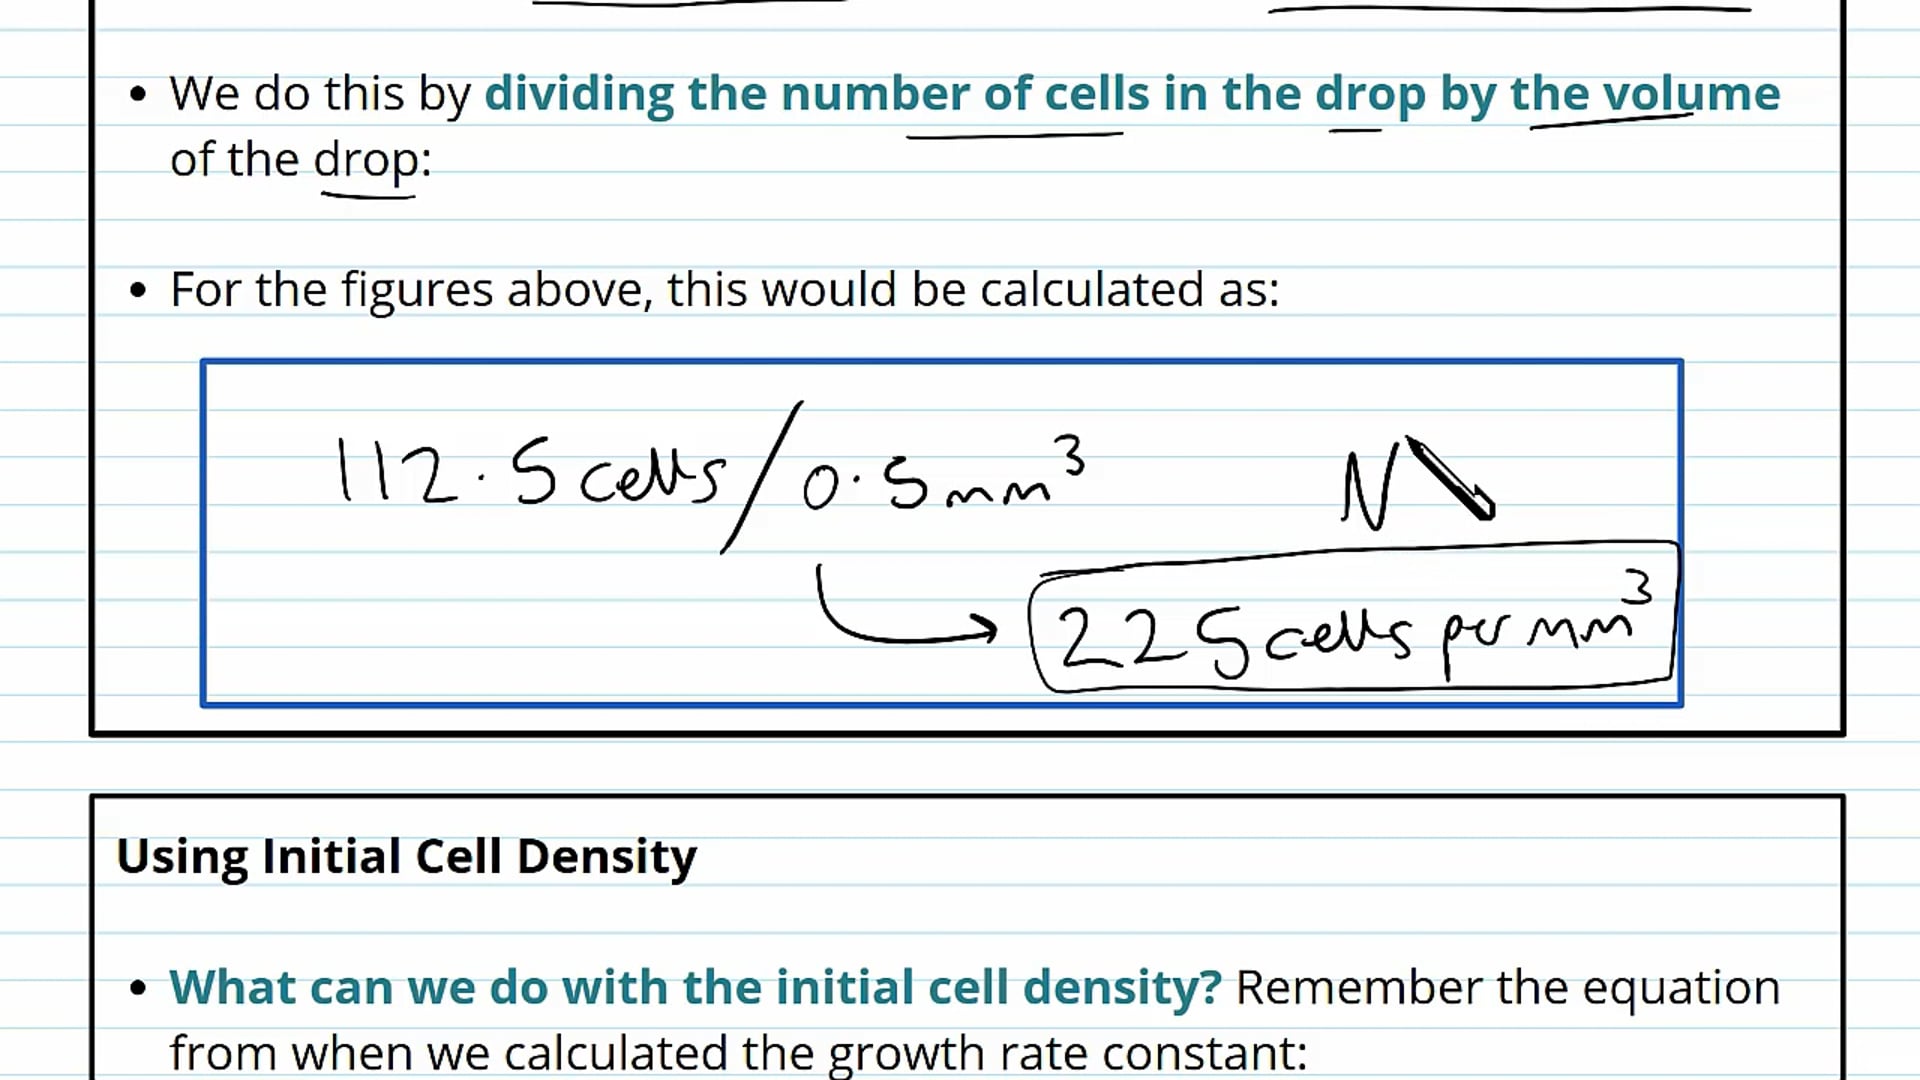 • We do this by dividing the number of cells in the drop by the volume
of the drop:
• For the figures above, this would be calculated as:
112.5 cells / 0.5 mm³ N
225 cells per mm³
Using Initial Cell Density
• What can we do with the initial cell density? Remember the equation
from when we calculated the growth rate constant: